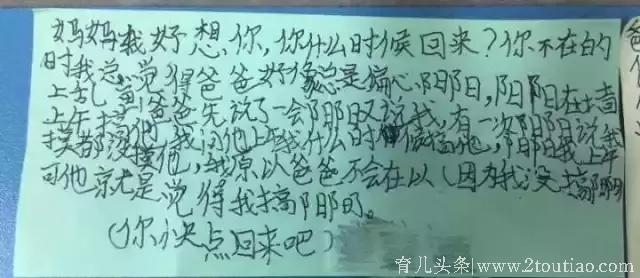 妈妈我好想你,你什么时候回来?你不在的
时我总觉得爸爸好像总是偏心阳阳,阳阳在墙
上乱画!爸爸先说了一会阳阳又说我,有一次阳阳说我
上午
我问他上午我什么时候
我原以爸爸不会在以(因为我没搞阳阳
可他就是觉得我搞阳阳的。
(你快点回来吧)
育儿头条 www.2toutiao.com